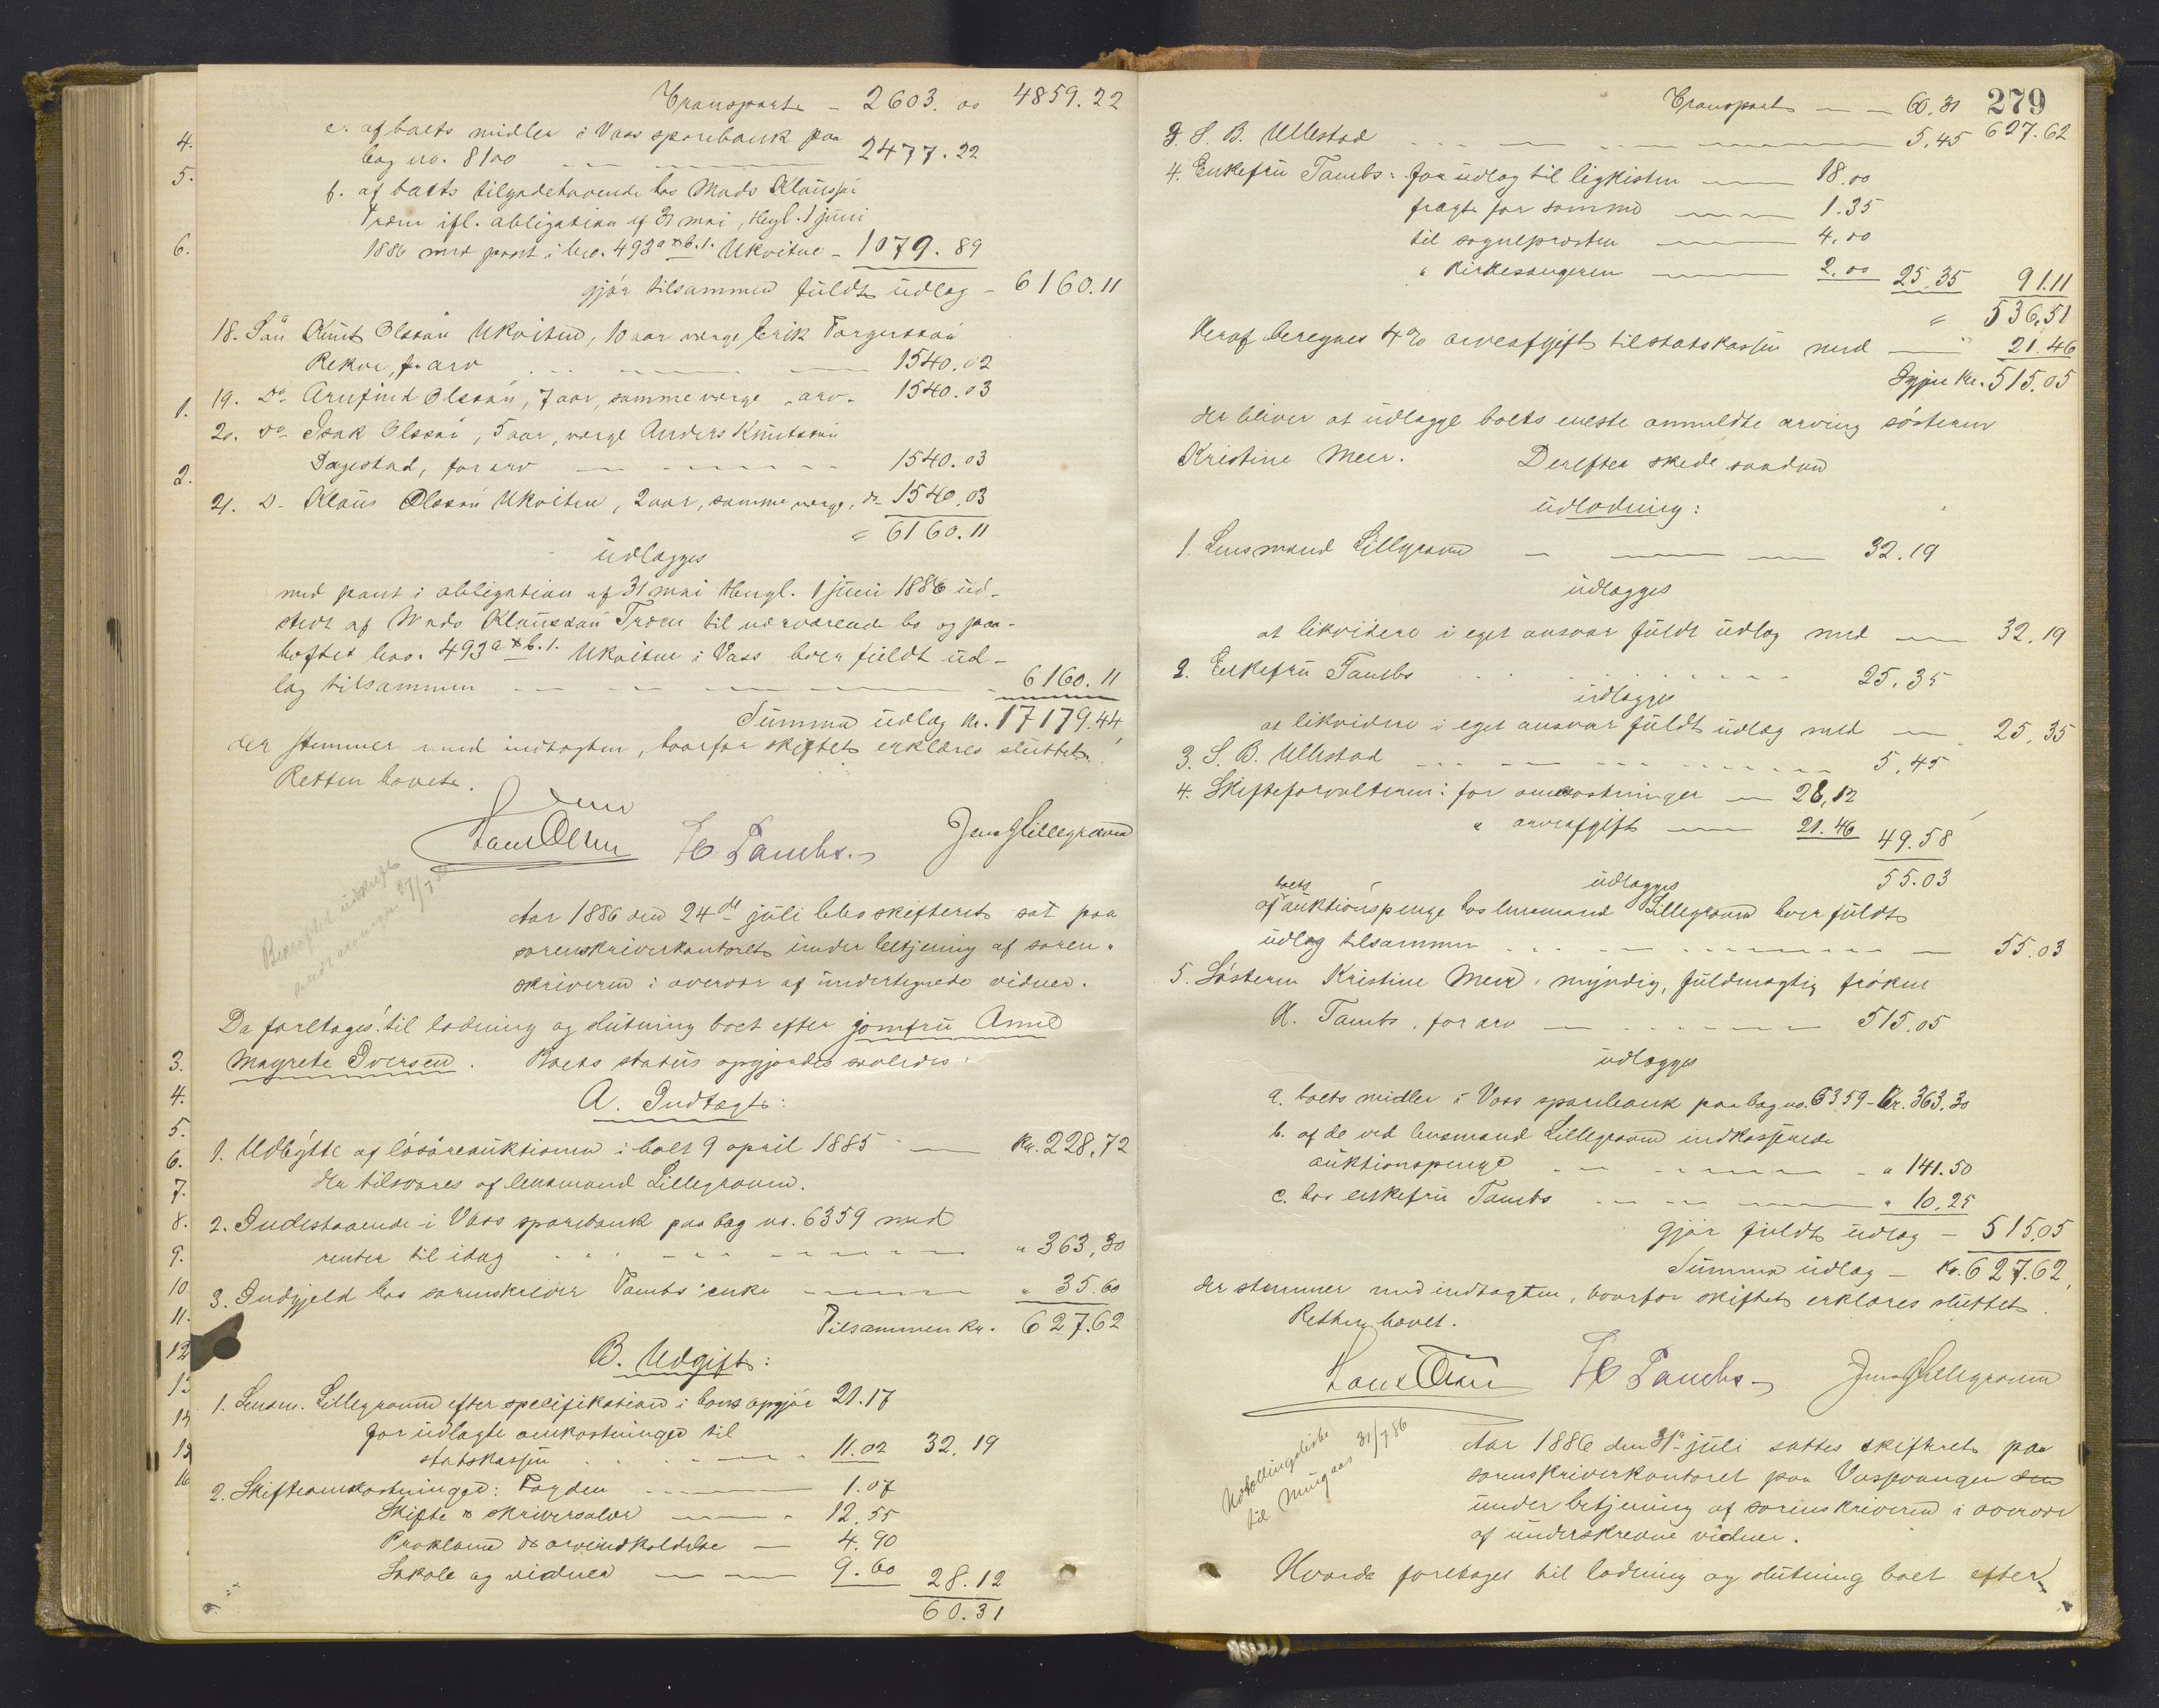 Transport - 2603. 00 4859.22
e. af boets midler i Voss sparebank paa
bog no. 8100 2477.22
f. af boets tilgodehavende hos Mads Klausson
Træen ifl. obligation af 31 mai, thgl. 1 juni
1886 med pant i bno. 493 a & b. 1. Ukvitne - 1079.89
gjør tilsammen fuldt udlæg - 6160.11
18. Søn Knut Olsson Ukvitne, 10 aar værge Erik Torgersson
Rekve, for arv 1540.02
19. Do. Arnfind Olsson, 7 aar, samme værge - arv - 1540.03
20. Do Isak Olsson, 5 aar, værge Anders Knutsson
Dagestad, for arv 1540.03
21. D- Klaus Olsson Ukvitne, 2 aar, samme værge, do- 1540.03
= 6160.11
udlægges
med pant i obligation af 31 mai thingl. 1 juni 1886 ud-
stedt af Mads Klausson Træen til nærværende bo og paa-
heftet bno. 493 a & b. 1. Ukvitne i Voss hver fuldt ud-
læg tilsammen 6160.11
Summa udlæg Kr. 17179.44,
der stemmer med indtægten, hvorfor skiftet erklæres sluttet.
Retten hævet.
H Tambs. Jens Lillegraven
27/7 86
Aar 1886 den 24de juli blev skifteret sat paa
sorenskriverkontoret under betjening af soren-
skriveren i overvær af undertegnede vidner.
Da foretages til lodning og slutning boet efter jomfru Anne
Magrete Iversen. Boets status opgjordes saaledes:
A. Indtægt:
1. Udbytte af løsøreauktionen i boet 9 april 1885 Kr. 228.72
der tilsvares af lensmand Lillegraven.
2. Indestaaende i Voss sparebank paa bog no. 6359 med
renter til idag " 363,30
3. Indgjeld hos sorenskriver Tambs' enke " 35.60
Tilsammen Kr. 627.62
B. Udgift:
1. Lensm. Lillegraven efter specifikation i hans opgjør 21.17
for udlagte omkostninger til
statskassen 11.02 32.19
2. Skifteomkostninger: Fogden 1.07
Skifte & skriversalær 12.55
Proklama & arveindkaldelse 4.90
Lokale og vidner 9.60 28.12
60.31
4.
5.
6.
1.
2.
3.
4.
5.
6.
7.
8.
9.
10
11.
12
13
14
15
16
279
Transport 60.31 627.62
3. S. B. Ullestad 5.45
4. Enkefru Tambs: for udlæg til ligkisten 18.00
fragt for samme 1.35
til sognepresten 4.00
" kirkesangeren 2.00 25.35 91.11
= 536,51
Heraf beregnes 4% arveafgift til statskassen med 21.46
Igjen Kr. 515.05
der bliver at udlægge boets eneste anmeldte arving søsteren
Kristine Meer. Derefter skede saadan
udlodning:
1. Lensmand Lillegraven 32.19
udlægges
at likvidere i eget ansvar fuldt udlæg med 32.19
2. Enkefru Tambs 25.35
udlægges
at likvidere i eget ansvar fuldt udlæg med 25.35
3. S. B. Ullestad 5,45
4. Skifteforvalteren: for omkostninger 28,12
" arveafgift 21.46 49.58
55.03
udlægges
af boets auktionspenge hos lensmand Lillegraven hver fuldt
udlæg tilsammen 55.03
5. Søsteren Kristine Meer, myndig, fuldmægtig frøken
A. Tambs, for arv 515.05
udlægges
a. boets midler i Voss sparebank paa bog no. 6359 - Kr. 363.30
b. af de ved lensmand Lillegraven indkasserede
auktionspenge " 141.50
c. hos enkefru Tambs " 10.25
gjør fuldt udlæg - 515.05
Summa udlæg - Kr. 627.62,
der stemmer med indtægten, hvorfor skiftet erklæres sluttet.
Retten hævet.
H Tambs Jens Lillegraven
31/7 86
Aar 1886 den 31te juli sattes skifteret paa
sorenskriverkontoret paa Vossevangen den
under betjening af sorenskriveren i overvær
af underskrevne vidner.
Hvorda foretages til lodning og slutning boet efter